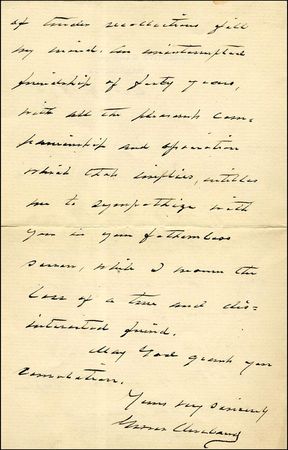 of tender recollections fill
my mind. An uninterrupted
friendship of forty years,
with all the pleasant com-
panionship and association
which that implies, entitles
me to sympathize with
you in your fatherless
sorrow, while I mourn the
loss of a true and dis-
interested friend.
May God grant you
consolation.
Yours very sincerely
Grover Cleveland